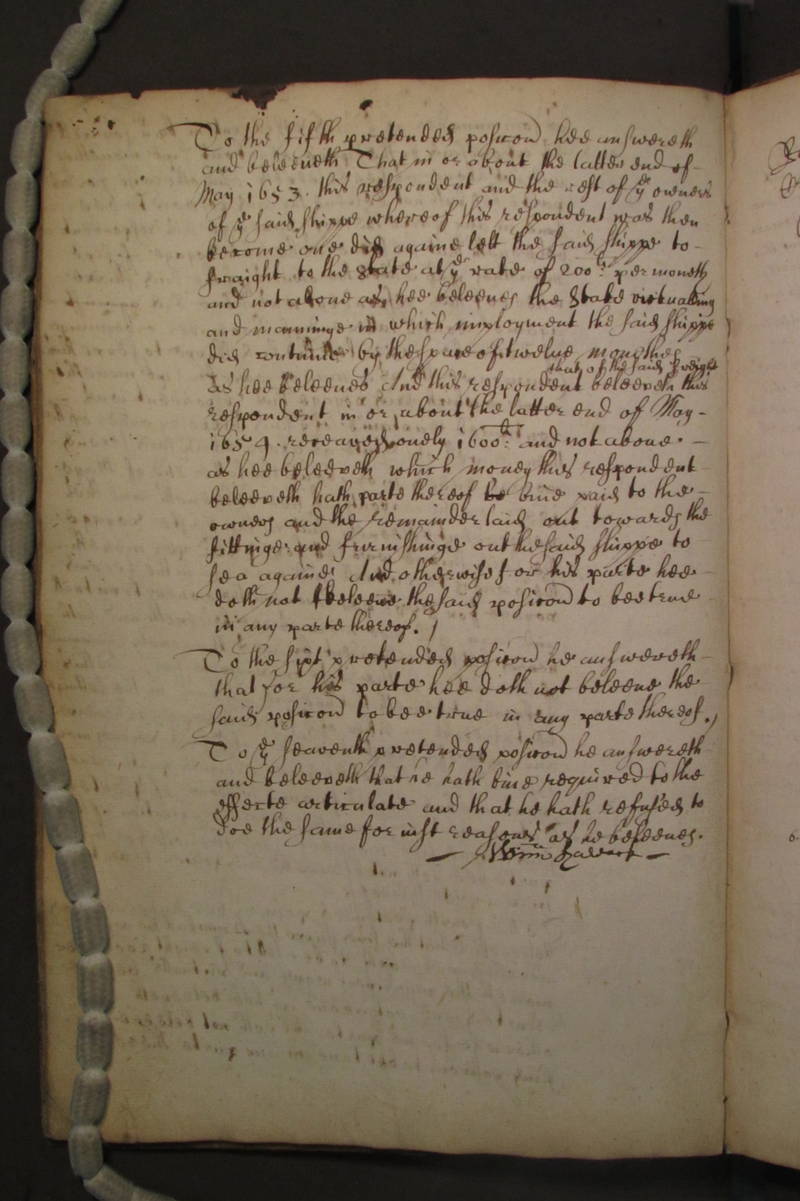 To the fifth pretended positon hee answereth
and beleeveth That in or about the latter end of
May 1653. this respondent and the rest of ye owners
of ye said shippe whereof this respondent was then
become one did againe lett the said shippe to
fraight to the State at ye rate of 200li per moneth
and not above as hee beleeves the State victualling
and manninge in which imployment the said shippe
did continue by the space of twelve monethes
that of the said freight
as hee beleeves And this respondent beleeveth this
respondent in or about the latter end of May
1654. receaved onely 1600li and not above
as hee beleeveth which money this respondent
beleeveth hath parte thereof bine paid to the
owners and the remainder laid out towards the
fittinge and furnishinge out the said shippe to
sea againe And otherwise for his parte hee
doth not beleeve the said positon to bee true
in any parte thereof./
To the sixt pretended positon he answereth
that for his parte hee doth not beleeve the
said positon to bee true in any parte thereof./
To ye seaventh pretended positon he answereth
and beleeveth that he hath bine required to the
effecte articulate and that he hath refused to
doe the same for iust reasons as he beleeves.